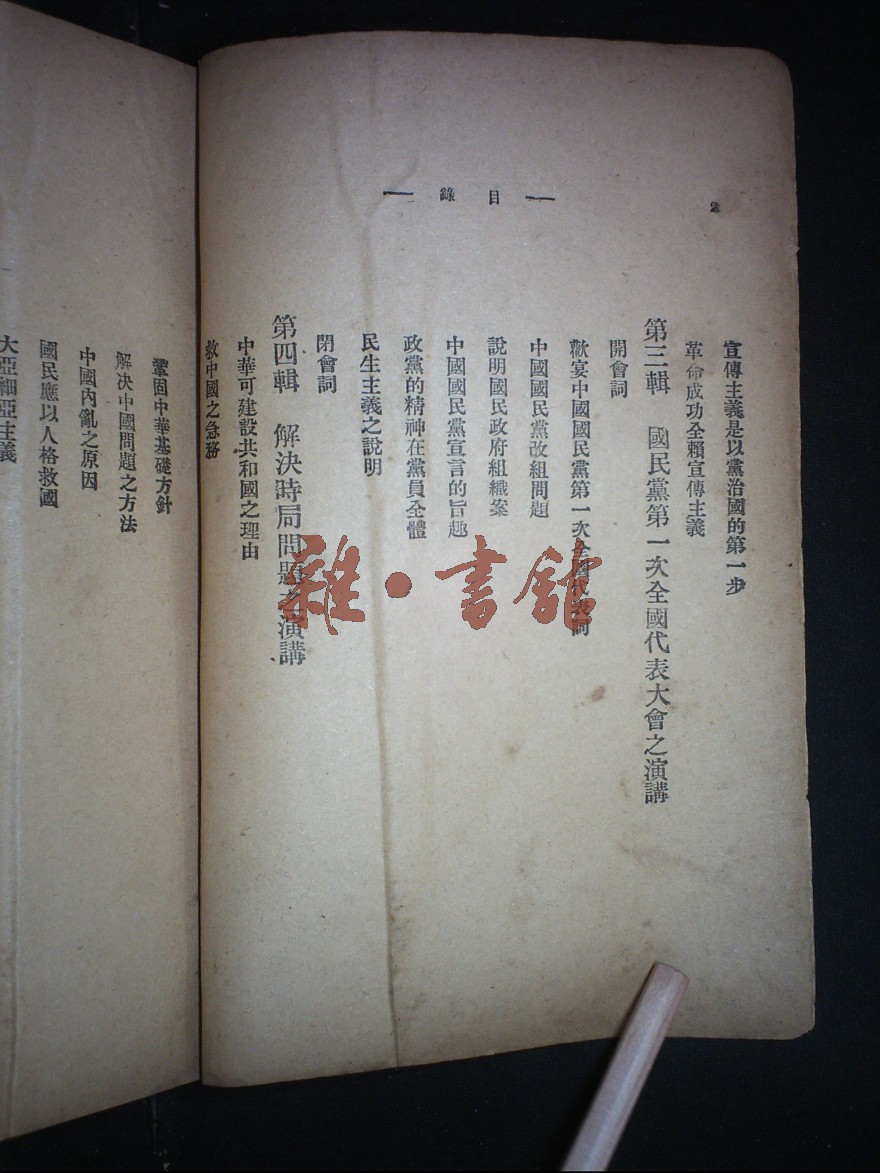 2
— 目錄 —
宣傳主義是以黨治國的第一步
革命成功全賴宣傳主義
第三輯 國民黨第一次全國代表大會之演講
開會詞
歡宴中國國民黨第一次全國代表詞
中國國民黨改組問題
說明國民政府組織案
中國國民黨宣言的旨趣
政黨的精神在黨員全體
民生主義之說明
閉會詞
第四輯 解決時局問題之演講
中華可建設共和國之理由
救中國之急務
鞏固中華基礎方針
解決中國問題之方法
中國內亂之原因
國民應以人格救國
大亞細亞主義
雜·書館